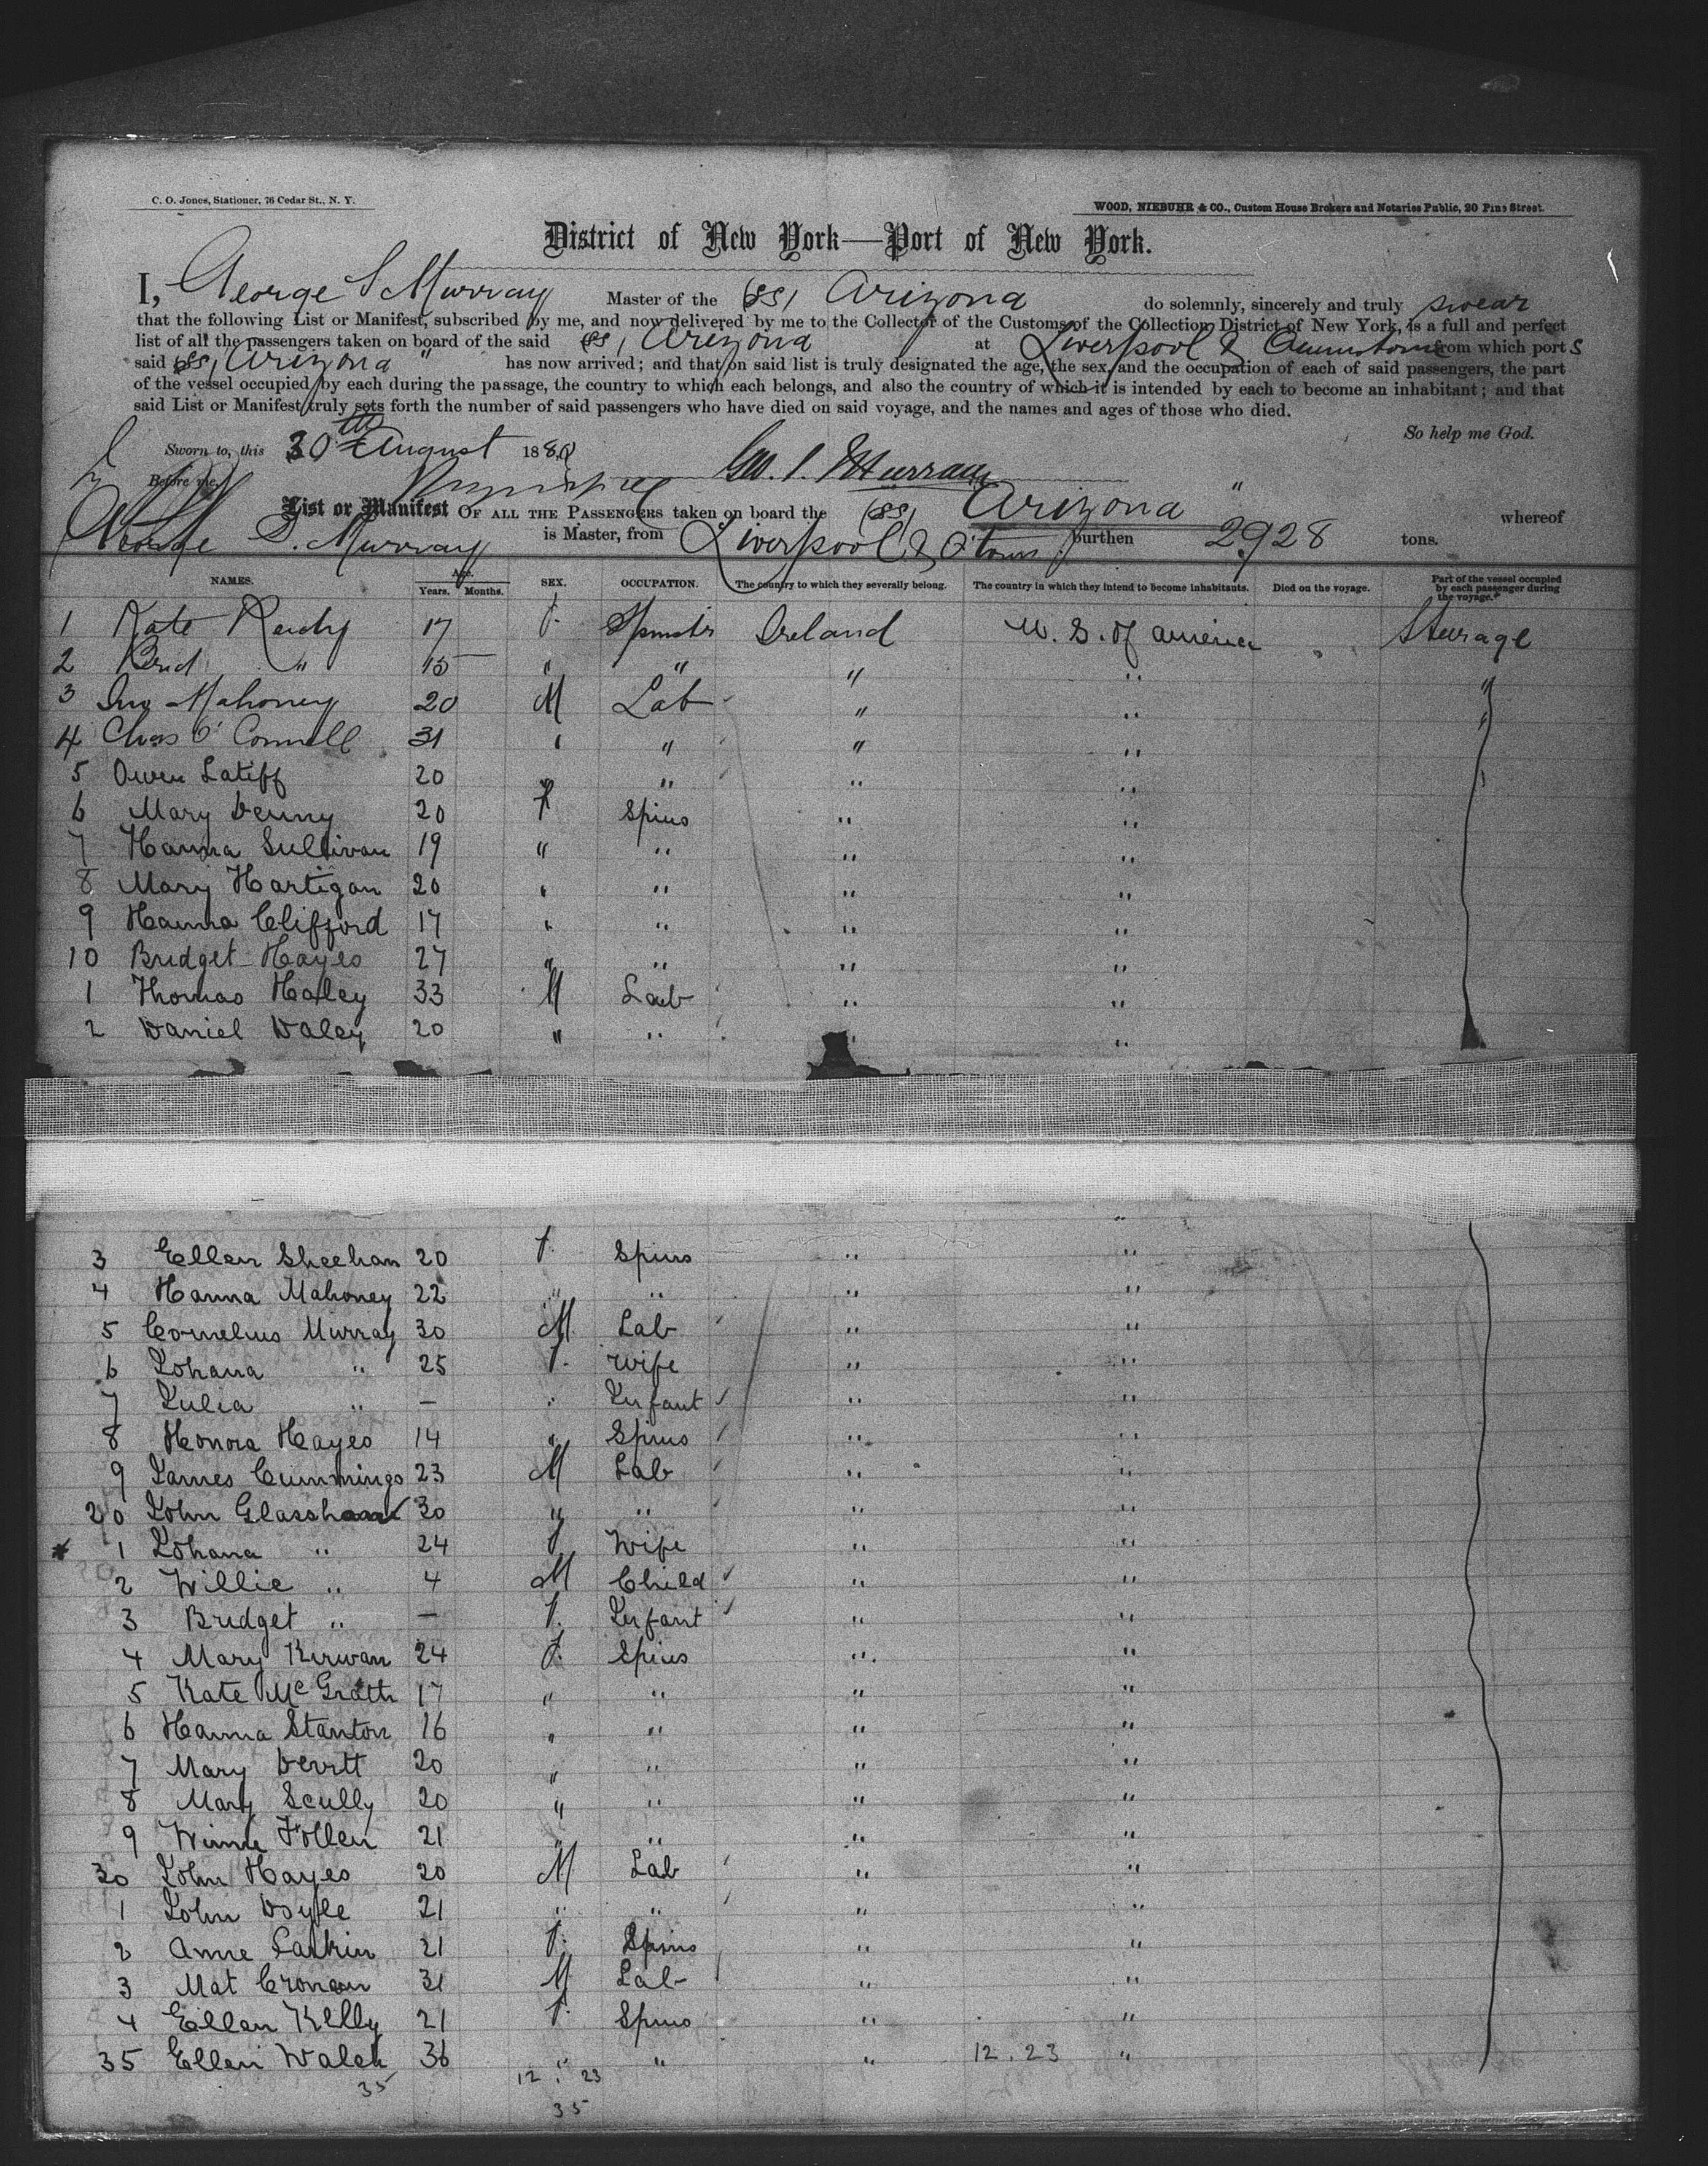 C. O. Jones, Stationer, 76 Cedar St., N. Y.
WOOD, NIEBUHR & CO., Custom House Brokers and Notaries Public, 20 Pine Street.
District of New York—Port of New York.
I, George S Murray Master of the (SS) Arizona do solemnly, sincerely and truly swear
that the following List or Manifest, subscribed by me, and now delivered by me to the Collector of the Customs of the Collection District of New York, is a full and perfect
list of all the passengers taken on board of the said (SS) Arizona at Liverpool & Queenstown from which port s
said (SS) Arizona " has now arrived; and that on said list is truly designated the age, the sex, and the occupation of each of said passengers, the part
of the vessel occupied by each during the passage, the country to which each belongs, and also the country of which it is intended by each to become an inhabitant; and that
said List or Manifest truly sets forth the number of said passengers who have died on said voyage, and the names and ages of those who died.
So help me God.
Sworn to, this 30th August 1880
Before me, Geo. S. Murray
List or Manifest OF ALL THE PASSENGERS taken on board the (SS) Arizona " whereof
George S. Murray is Master, from Liverpool & Q'town burthen 2928 tons.
NAMES. Age. Years. Months. SEX. OCCUPATION. The country to which they severally belong. The country in which they intend to become inhabitants. Died on the voyage. Part of the vessel occupied by each passenger during the voyage.
1 Kate Reidy 17 F. Spinstr Ireland U. S. of America Steerage
2 Brid " 15 " " " " "
3 Jno Mahoney 20 M Lab " " "
4 Chas O'Connell 31 " " " "
5 Owen Latiff 20 " " "
6 Mary Denny 20 F Spins " "
7 Hanna Sullivan 19 " " " "
8 Mary Hartigan 20 " " " "
9 Hanna Clifford 17 " " " "
10 Bridget Hayes 27 " " " "
1 Thomas Haley 33 M Lab " "
2 Daniel Daley 20 " " " "
3 Ellen Sheehan 20 F. Spins " "
4 Hanna Mahoney 22 " " " "
5 Cornelius Murray 30 M Lab " "
6 Johana " 25 F. Wife " "
7 Julia " — " Infant " "
8 Honora Hayes 14 " Spins " "
9 James Cummings 23 M Lab " "
20 John Glasshan 30 " " " "
1 Johana " 24 F Wife " "
2 Willie " 4 M Child " "
3 Bridget " — F. Infant " "
4 Mary Kirwan 24 F. Spins " "
5 Kate McGrath 17 " " " "
6 Hanna Stanton 16 " " " "
7 Mary Devitt 20 " " " "
8 Mary Scully 20 " " " "
9 Winne Follen 21 " " " "
30 John Hayes 20 M Lab " "
1 John Doyle 21 " " " "
2 Anne Larkin 21 F. Spins " "
3 Mat Cronan 31 M Lab " "
4 Ellen Kelly 21 F. Spins " "
35 Ellen Walsh 36 " " " 12.23 "
35 12 . 23
35